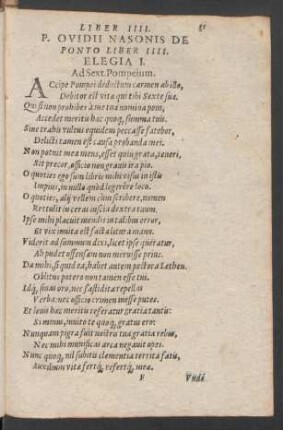 LIBER IIII.
P. OVIDII NASONIS DE
PONTO LIBER IIII.
ELEGIA I.
Ad Sext. Pompeium.
ACcipe Pompei deductum carmen ab illo,
Debitor est vitæ qui tibi Sexte suæ.
Qui si non prohibes à me tua nomina poni,
Accedet meritis hæc quoq; summa tuis.
Siue trahis vultus equidem peccasse fatebor,
Delicti tamen est causa probanda mei.
Non potuit mea mens, esset quin grata, teneri,
Sit precor, officio non grauis ira pio.
O quoties ego sum libris mihi visus in istis
Impius, in nullo quòd legerêre loco.
O quoties, alij vellem cùm scribere, nomen
Rettulit in ceras inscia dextra tuum.
Ipse mihi placuit mendis in talibus error,
Et vix inuita est facta litura manu.
Viderit ad summum dixi, licet ipse queratur,
Ah pudet offensam non meruisse prius.
Da mihi, si quid ea, hebet autem pectora Lethen,
Oblitus potero non tamen esse tui.
Idq; sinas oro, nec fastidita repellas
Verba: nec officio crimen inesse putes.
Et leuis hæc meritis referatur gratia tantis:
Si minus, inuito te quoq; gratus ero.
Nunquam pigra fuit nostris tua gratia rebus,
Nec mihi munificas arca negauit opes.
Nunc quoq; nil subitis clementia territa fatis,
Auxilium vitæ fertq; refertq; meæ.
F
Vndè